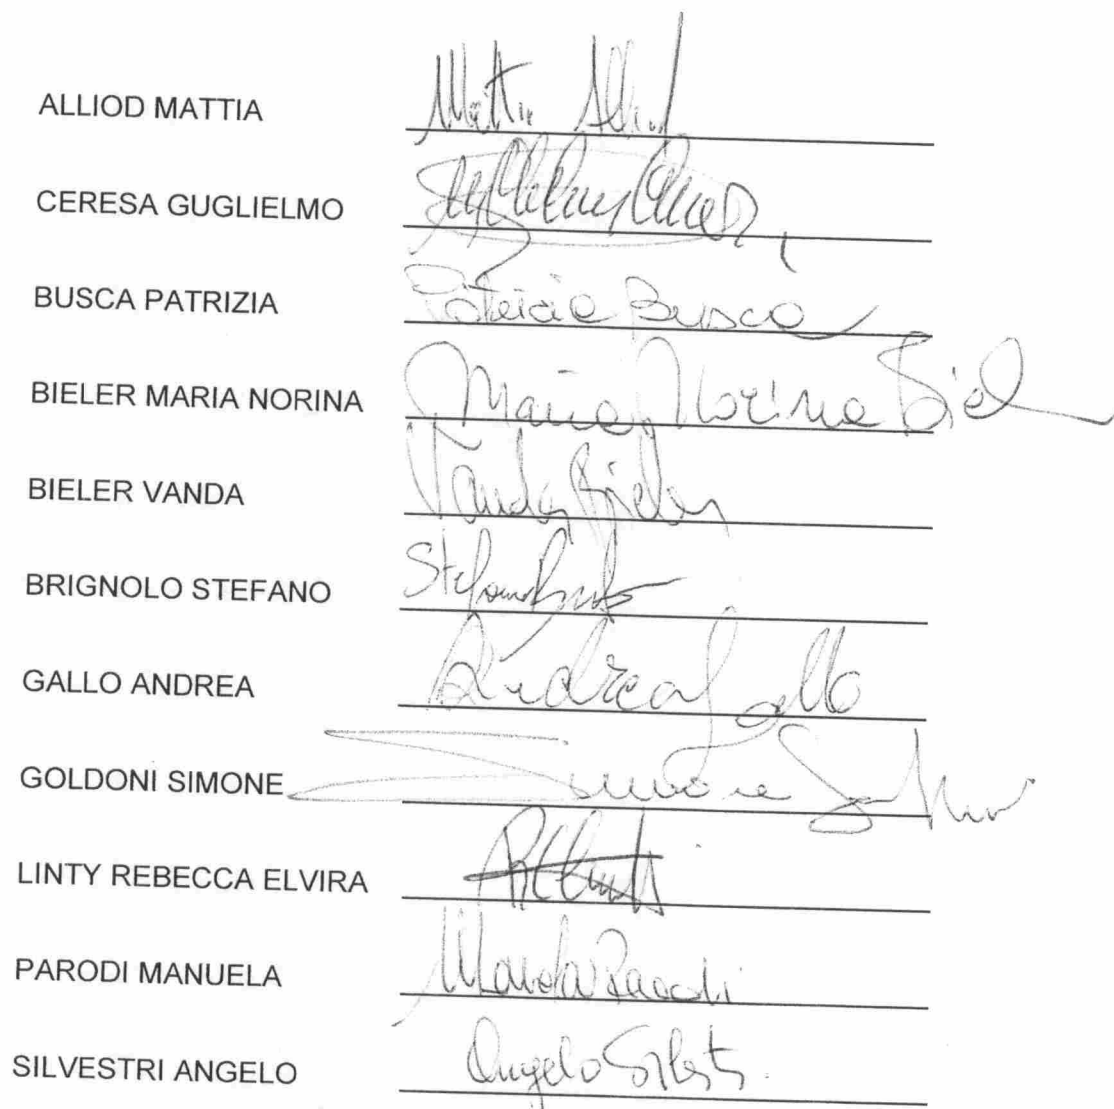 ALLIOD MATTIA Mattia Alliod
CERESA GUGLIELMO
BUSCA PATRIZIA Patrizia Busca
BIELER MARIA NORINA Maria Norina Biel
BIELER VANDA Vanda Bieler
BRIGNOLO STEFANO Stefano
GALLO ANDREA Andrea Gallo
GOLDONI SIMONE Simone
LINTY REBECCA ELVIRA
PARODI MANUELA Manuela Parodi
SILVESTRI ANGELO Angelo Silvestri